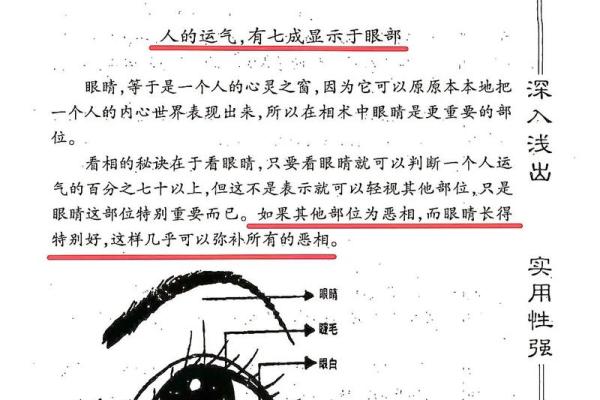 人的运气,有七成显示于眼部
眼睛,等于是一个人的心灵之窗,因为它可以原原本本地把
一个人的内心世界表现出来,所以在相术中眼睛是更重要的部
位。
看相的秘诀在于看眼睛,只要看眼睛就可以判断一个人运
气的百分之七十以上,但这不是表示就可以轻视其他部位,只是
眼睛这部位特别重要而已。如果其他部位为恶相,而眼睛长得
特别好,这样几乎可以弥补所有的恶相。
眼睛
睫毛
眼白
深入浅出
实用性强